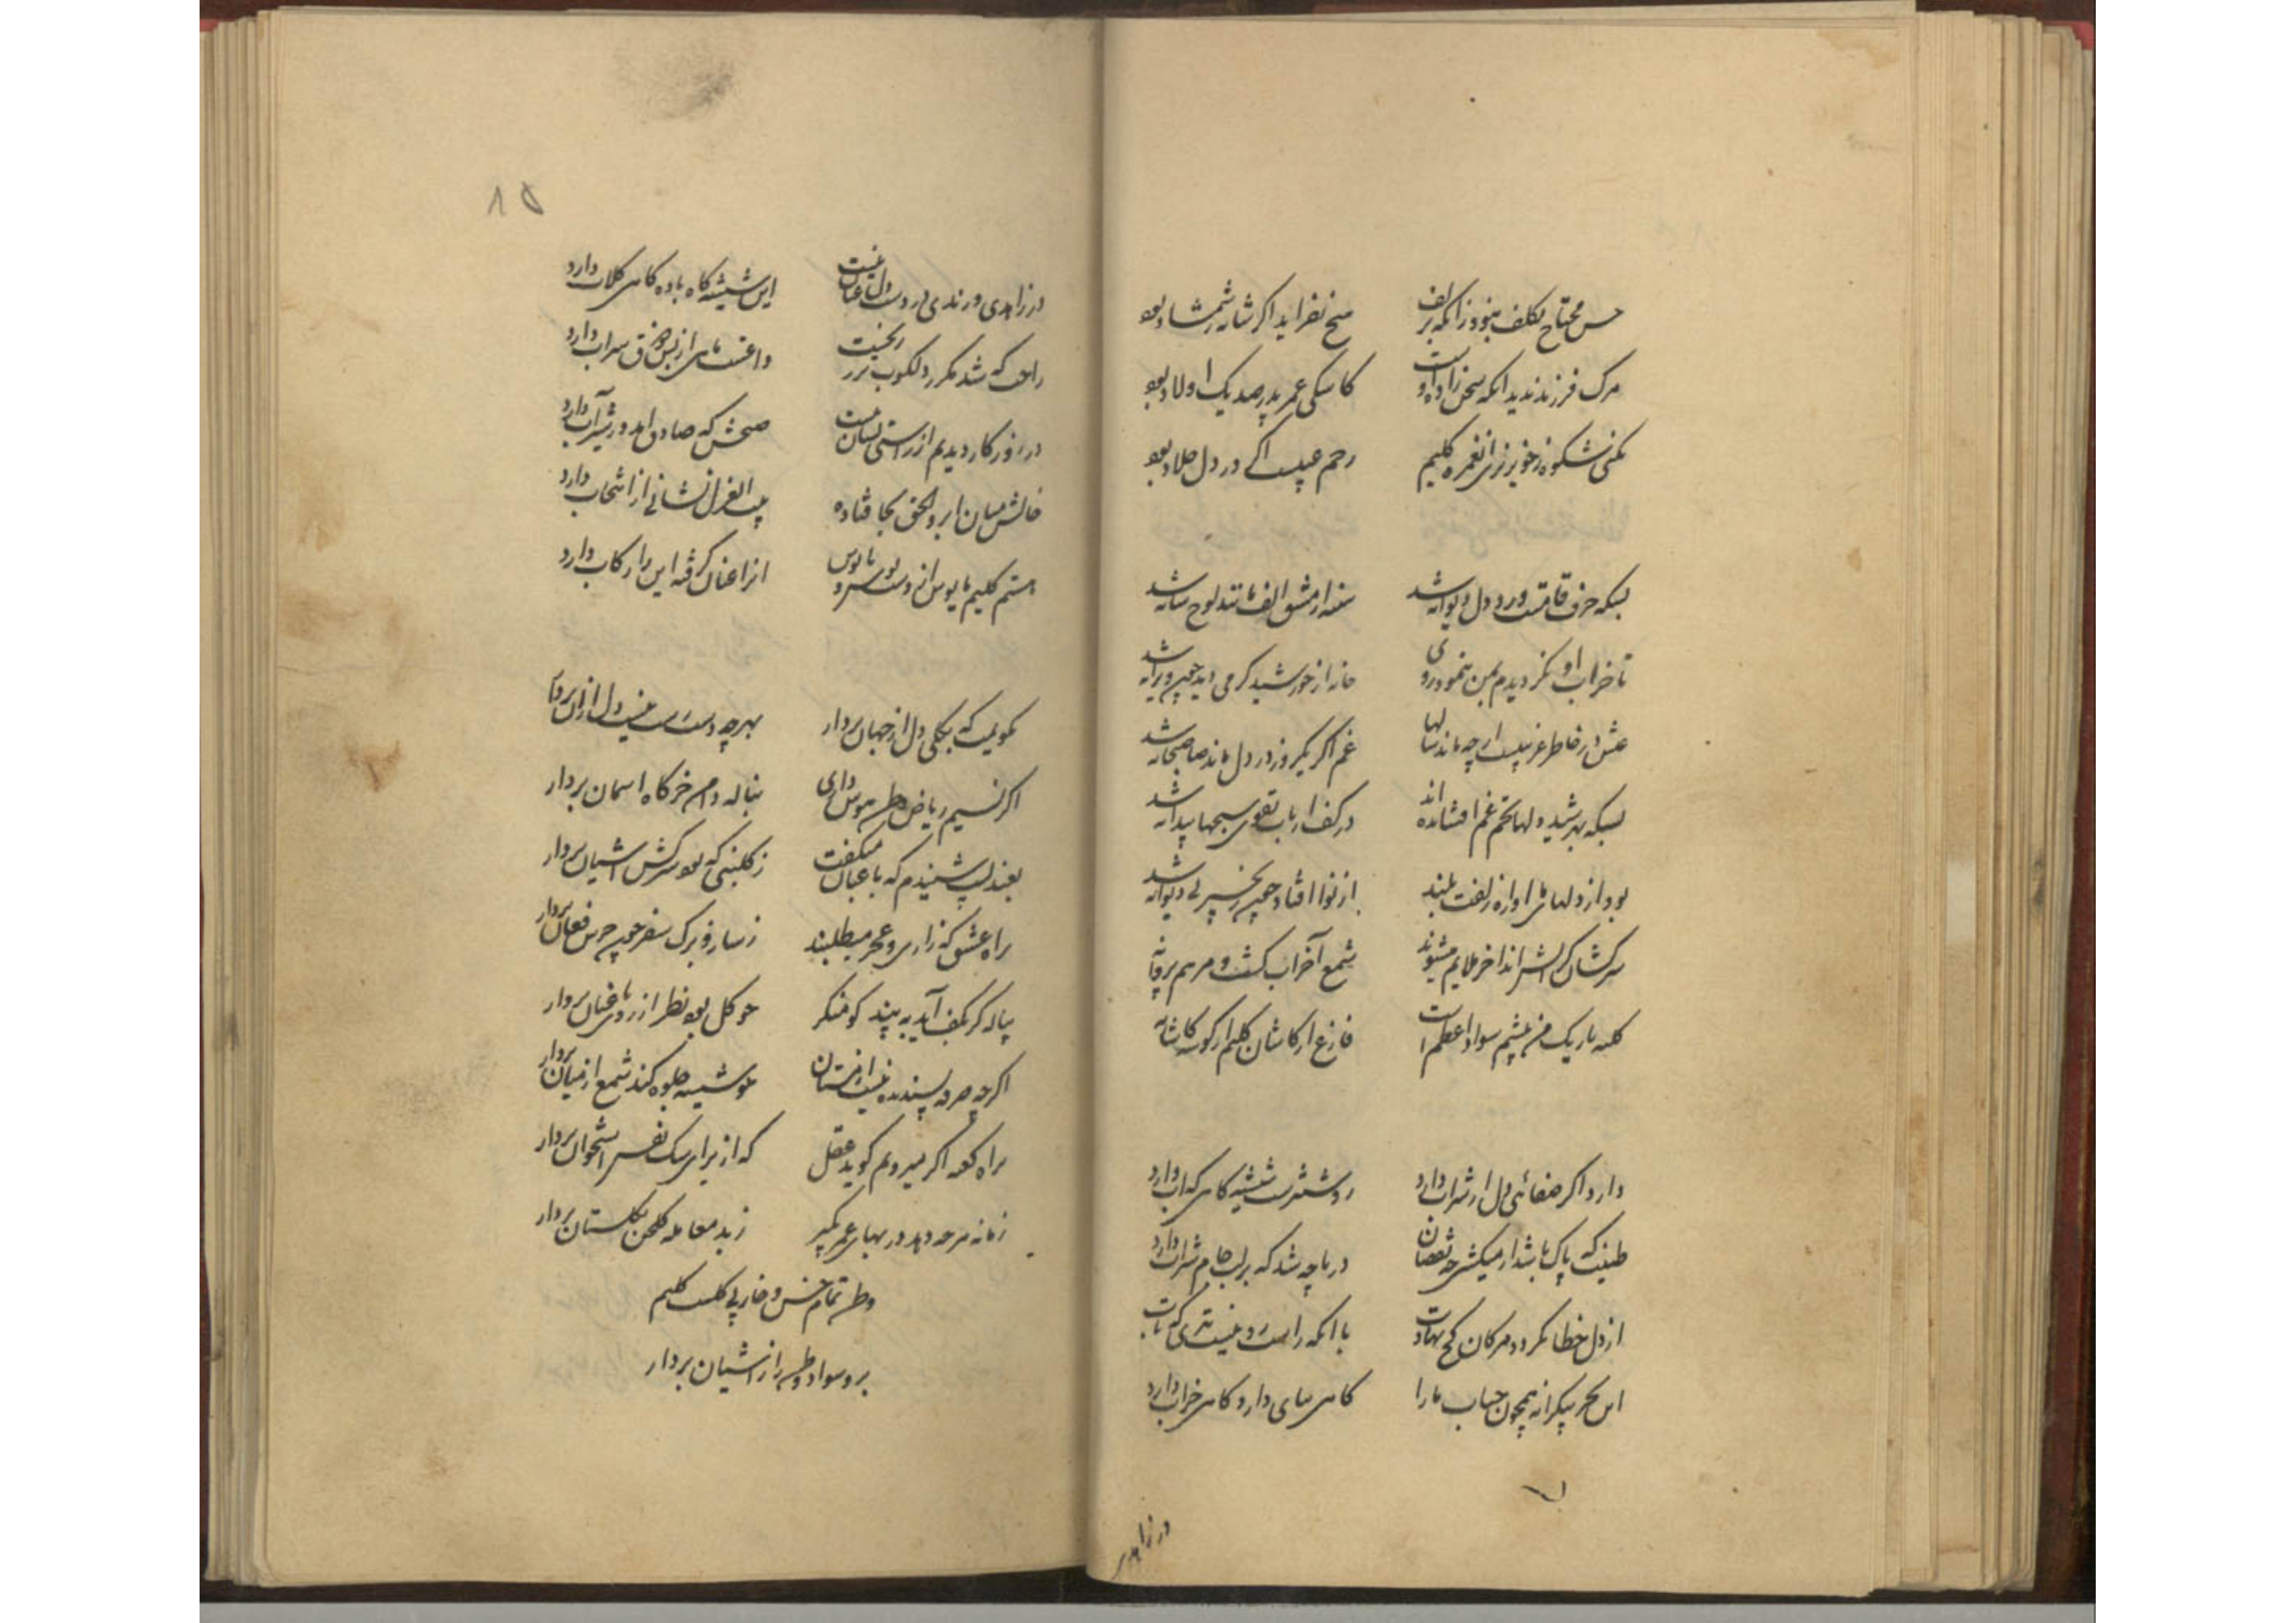 حسن محتاج تکلف نبود زانکه زلف   هیچ نفزاید اگر شانه ز شمشاد بود
مرگ فرزند ندید آنکه سخن زاده اوست   کاشکی عمر پدر صد یک اولاد بود
مکنی شکوه ز خونریزی آن غمزه کلیم   رحم عیبست اگر در دل جلاد بود
بسکه حرف قامتت ورد دل دیوانه شد   سینه از مشق الف مانند لوح شانه شد
تا خراب او نگردیدم بمن ننمود روی   خانه از خورشید گرمی دید چون ویرانه شد
عیش در خاطر غریبست ارچه ماند سالها   غم اگر یکروز در دل ماند صاحبخانه شد
بسکه بهر شید دلها تخم غم افشانده اند   در کف ارباب تقوی سبحها پیدا نه شد
بود از دلهای ما آوازه زلفت بلند   از نوا افتاد چون زنجیر بی دیوانه شد
سرکشان گر آتش اند آخر ملایم میشوند   شمع آخر آب گشت و مرهم پروانه
کلبه تاریک من چشم سواد اعظم است   فارغ از کاشان کلیم از گوشه کاشانه
دارد اگر صفائی دل از شراب دارد   روشنترست شیشه گاهی که آب دارد
طینت که پاک باشد از میکشی چه نقصان   دریا چه شد که بر لب جام شراب دارد
از دل خطا نگردد مژگان کج نهادت   با آنکه راست رو نیست تیری که تاب
این بحر بیکرانه همچون حباب ما را   گاهی بپای دارد گاهی خراب دارد
در زاهدی
۸۵
در زاهدی و رندی در دست دل عنان نیست   این شیشه گاه باده گاهی گلاب دارد
راهی که شد مکرر دلکوب نیز   داغست پای از بس ذوق سراب دارد
در روزگار دیدیم از راستی نشان نیست   صبحش که صادق آمد در شیر آب دارد
خالش میان ابرو الحق بجا فتاده   بیت الغزل نشانی از انتخاب دارد
هستم کلیم مایوس از دست   آنرا عنان گرفته این را رکاب دارد
نگویمت که بکلی دل از جهان بردار   بهرچه دست رست نیست دل از آن بردار
اگر نسیم ریاض وطن هوس داری   بناله دامن خرگاه آسمان بردار
بعندلیب شنیدم که باغبان میگفت   ز گلبنی که بود سرکش آشیان بردار
براه عشق که زاری و عجز میطلبند   ز ساز و برگ سفر چون جرس فغان بردار
پیاله گر بکف آید به بیند گو منکر   چو گل بود نظر از روی باغبان بردار
اگرچه حرف پسندیده نیست از مستان   چو شیشه جلوه کند شمع از میان بردار
براه کعبه اگر میرویم گوید عقل   که از برای سگ نفس استخوان بردار
زمانه هرچه دهد در بهای عمر بگیر   ز بد معامله گلخن بگلستان بردار
وطن تمام خس و خار بی گلست کلیم
برو سواد وطن را ز آشیان بردار